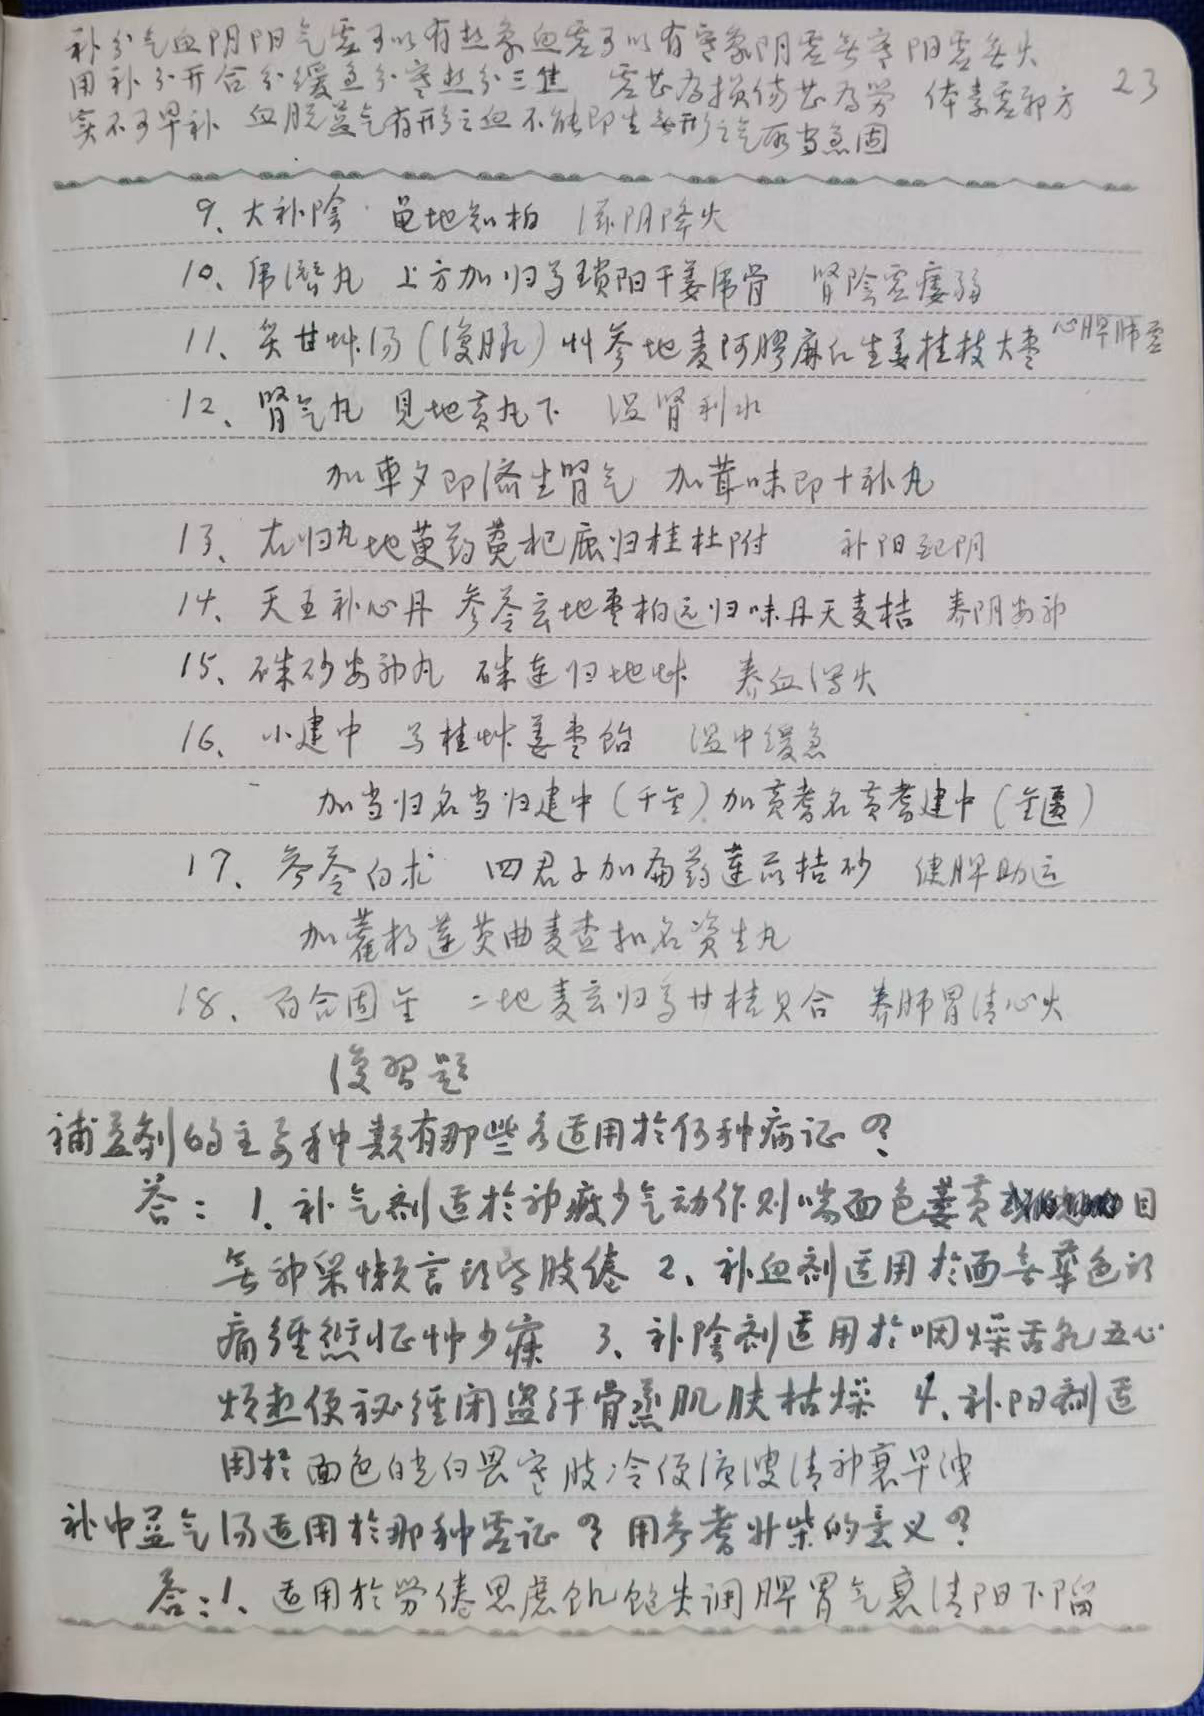 补分气血阴阳气虚可以有热象血虚可以有寒象阴虚无寒阳虚无火
用补分开合分缓急分寒热分三焦 虚甚为损伤甚为劳 体素虚邪方
23
实不可早补 血脱益气有形之血不能即生无形之气所当急固
9、大补陰 龟地知柏 滋阴降火
10、虎潜丸 上方加归芍琐阳干姜虎骨 肾陰虚痿弱
11、炙甘艸汤(復脉)艸参地麦阿膠麻仁生姜桂枝大枣 心脾肺虚
12、腎气丸 見地黄丸下 温肾利水
加車夕即济生腎气 加茸味即十补丸
13、右归丸地萸药菟杞鹿归桂杜附 补阳配阴
14、天王补心丹 参苓玄地枣柏远归味丹天麦桔 养阴安神
15、硃砂安神丸 硃连归地艸 养血泻火
16、小建中 芍桂艸姜枣饴 温中缓急
加当归名当归建中(千金)加黄耆名黄耆建中(金匮)
17、参苓白术 四君子加扁药莲苡桔砂 健脾助运
加藿桔莲芡曲麦查扣名资生丸
18、百合固金 二地麦玄归芍甘桔贝合 养肺胃清心火
復習题
補益剂的主要种类有那些各适用於何种病证?
答:1、补气剂适於神疲少气动作则喘面色萎黄 目
無神采懒言頭昏肢倦 2、补血剂适用於面無華色頭
痛經愆怔忡少寐 3、补陰剂适用於咽燥舌乾五心
烦热便祕經闭盗汗骨蒸肌肤枯燥 4、补阳剂适
用於面色㿠白畏寒肢冷便溏溲清神衰早洩
补中益气汤适用於那种虚证?用参耆升柴的意义?
答:1、适用於劳倦思虑饥饱失调脾胃气衰清阳下陷